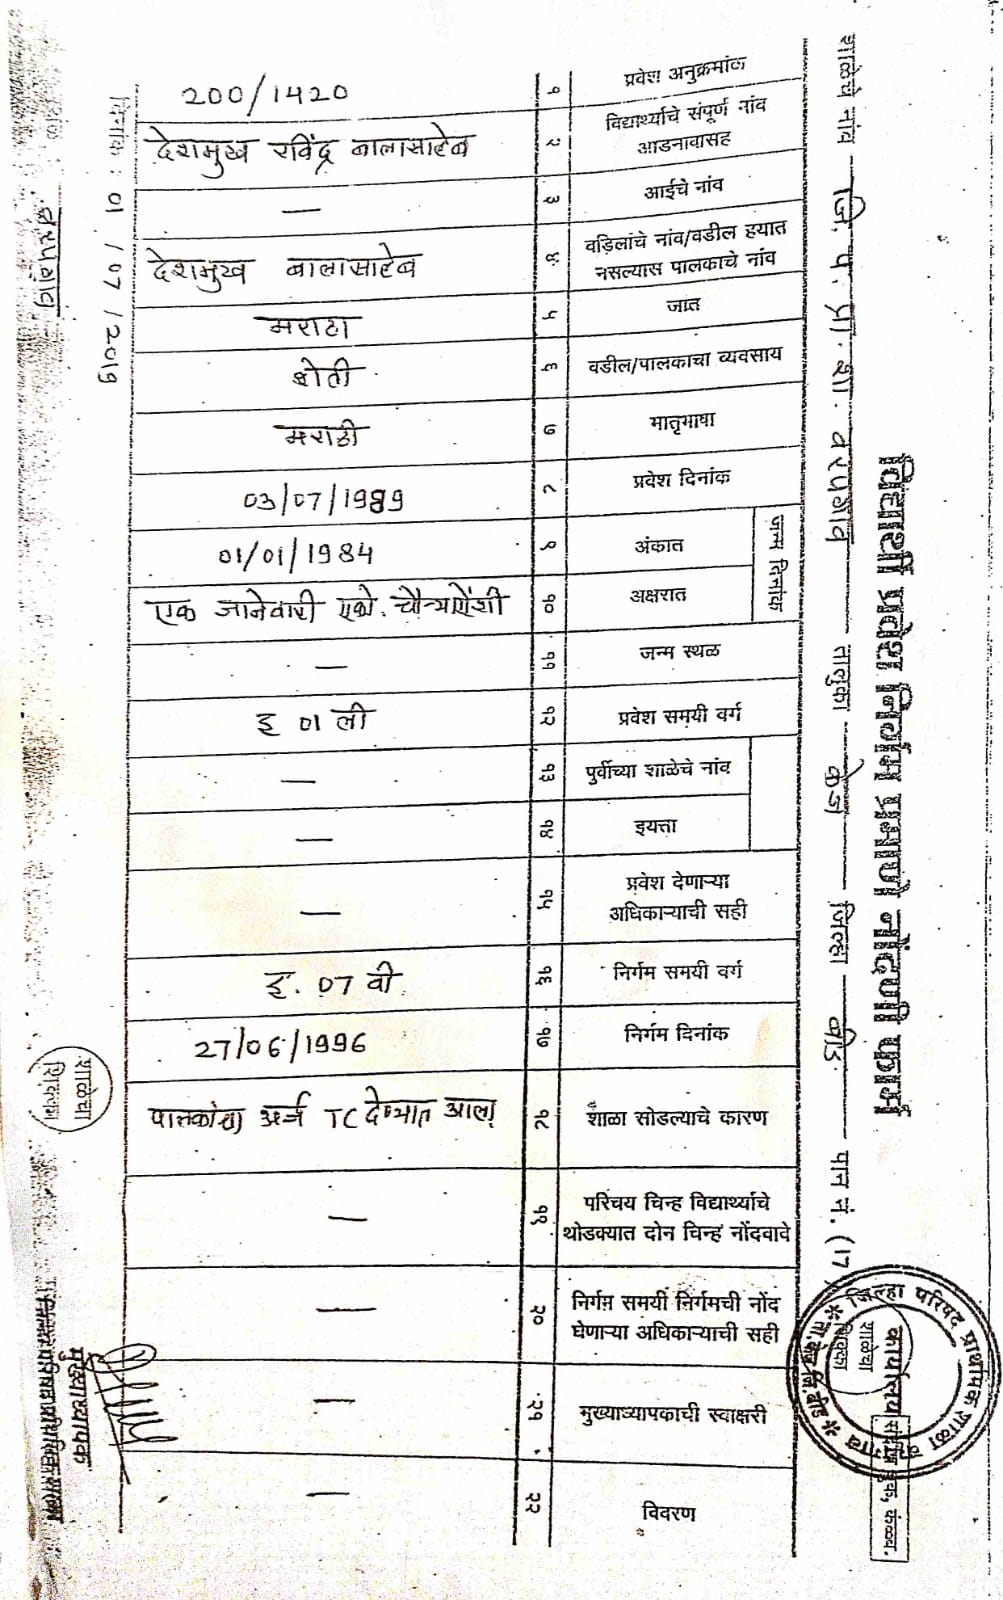 विद्यार्थी प्रवेश निर्गम प्रमाणे नोंदणी फार्म
शाळेचे नांव जि. प. प्रा. शा. वरपगाव तालुका केज जिल्हा बीड पान नं. (17
प्रवेश अनुक्रमांक १ 200/1420
विद्यार्थ्याचे संपूर्ण नांव
आडनावासह २ देशमुख रविंद्र बालासाहेब
आईचे नांव ३ —
वडिलांचे नांव/वडील हयात
नसल्यास पालकाचे नांव ४ देशमुख बालासाहेब
जात ५ मराठा
वडील/पालकाचा व्यवसाय ६ शेती
मातृभाषा ७ मराठी
प्रवेश दिनांक ८ 03/07/1989
जन्म दिनांक
अंकात ९ 01/01/1984
अक्षरात १० एक जानेवारी एको. चौऱ्याऐंशी
जन्म स्थळ ११ —
प्रवेश समयी वर्ग १२ इ 01 ली
पुर्वीच्या शाळेचे नांव १३ —
इयत्ता १४ —
प्रवेश देणाऱ्या
अधिकाऱ्याची सही १५ —
निर्गम समयी वर्ग १६ इ. 07 वी
निर्गम दिनांक १७ 27/06/1996
शाळा सोडल्याचे कारण १८ पालकांचा अर्ज TC देण्यात आला
परिचय चिन्ह विद्यार्थ्याचे
थोडक्यात दोन चिन्ह नोंदवावे १९ —
निर्गम समयी निर्गमची नोंद
घेणाऱ्या अधिकाऱ्याची सही २० —
मुख्याध्यापकाची स्वाक्षरी २१ —
विवरण २२ —
दिनांक : 01 / 07 / 2019
वरपगाव
शाळेचा
शिक्का
मुख्याध्यापक
जिल्हा परिषद प्राथमिक शाळा
ता. केज जि. बीड
शाळेचा
शिक्का
कार्यालय